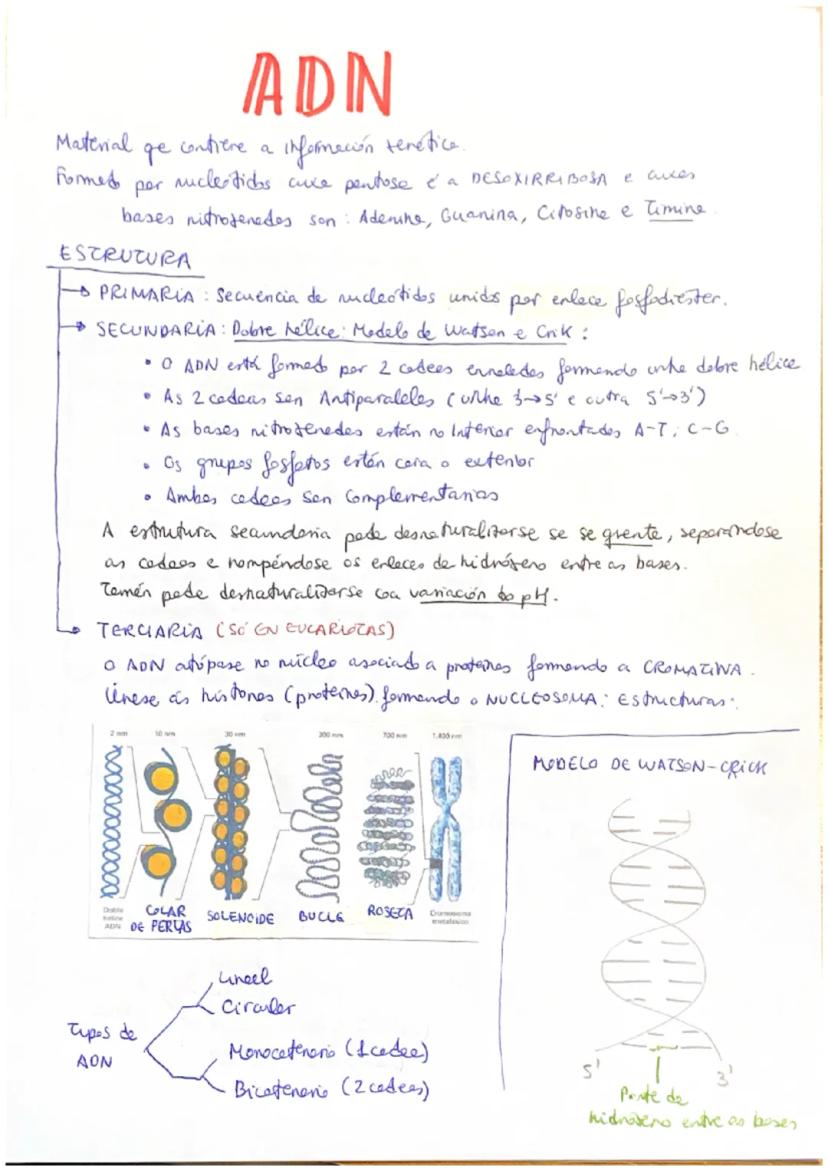 ADN
Material qe contiene a información xenética.
Formado por nucleótidos cuxa pentose é a DESOXIRRIBOSA e cuxas
bases nitroxenadas son: Adenina, Guanina, Citosina e Timina.
ESTRUTURA
→ PRIMARIA: Secuencia de nucleótidos unidos por enlace fosfodiéster.
→ SECUNDARIA: Dobre hélice: Modelo de Watson e Crik:
• O ADN está formado por 2 cadeas enroladas formando unha dobre hélice
• As 2 cadeas son Antiparalelas (unha 3→5' e outra 5'→3')
• As bases nitroxenadas están no interior enfrontadas A-T; C-G
• Os grupos fosfatos están cara o exterior
• Ambas cadeas son complementarias
A estrutura secundaria pode desnaturalizarse se se quente, separándose
as cadeas e rompéndose os enlaces de hidróxeno entre as bases.
Tamén pode desnaturalizarse coa variación do pH.
→ TERCIARIA (SÓ EN EUCARIOTAS)
O ADN atópase no núcleo asociado a proteínas formando a CROMATINA.
Únese ás histonas (proteínas) formando o NUCLEOSOMA: Estructuras:
2 nm 10 nm 30 nm 300 nm 700 nm 1.400 nm
Doble hélice ADN
COLAR DE PERLAS
SOLENOIDE
BUCLE
ROSETA
Cromosoma metafásico
MODELO DE WATSON-CRICK
5'
3'
Ponte de
hidróxeno entre as bases
Tipos de
ADN
Lineal
Circular
Monocatenario (1 cadea)
Bicatenario (2 cadeas)